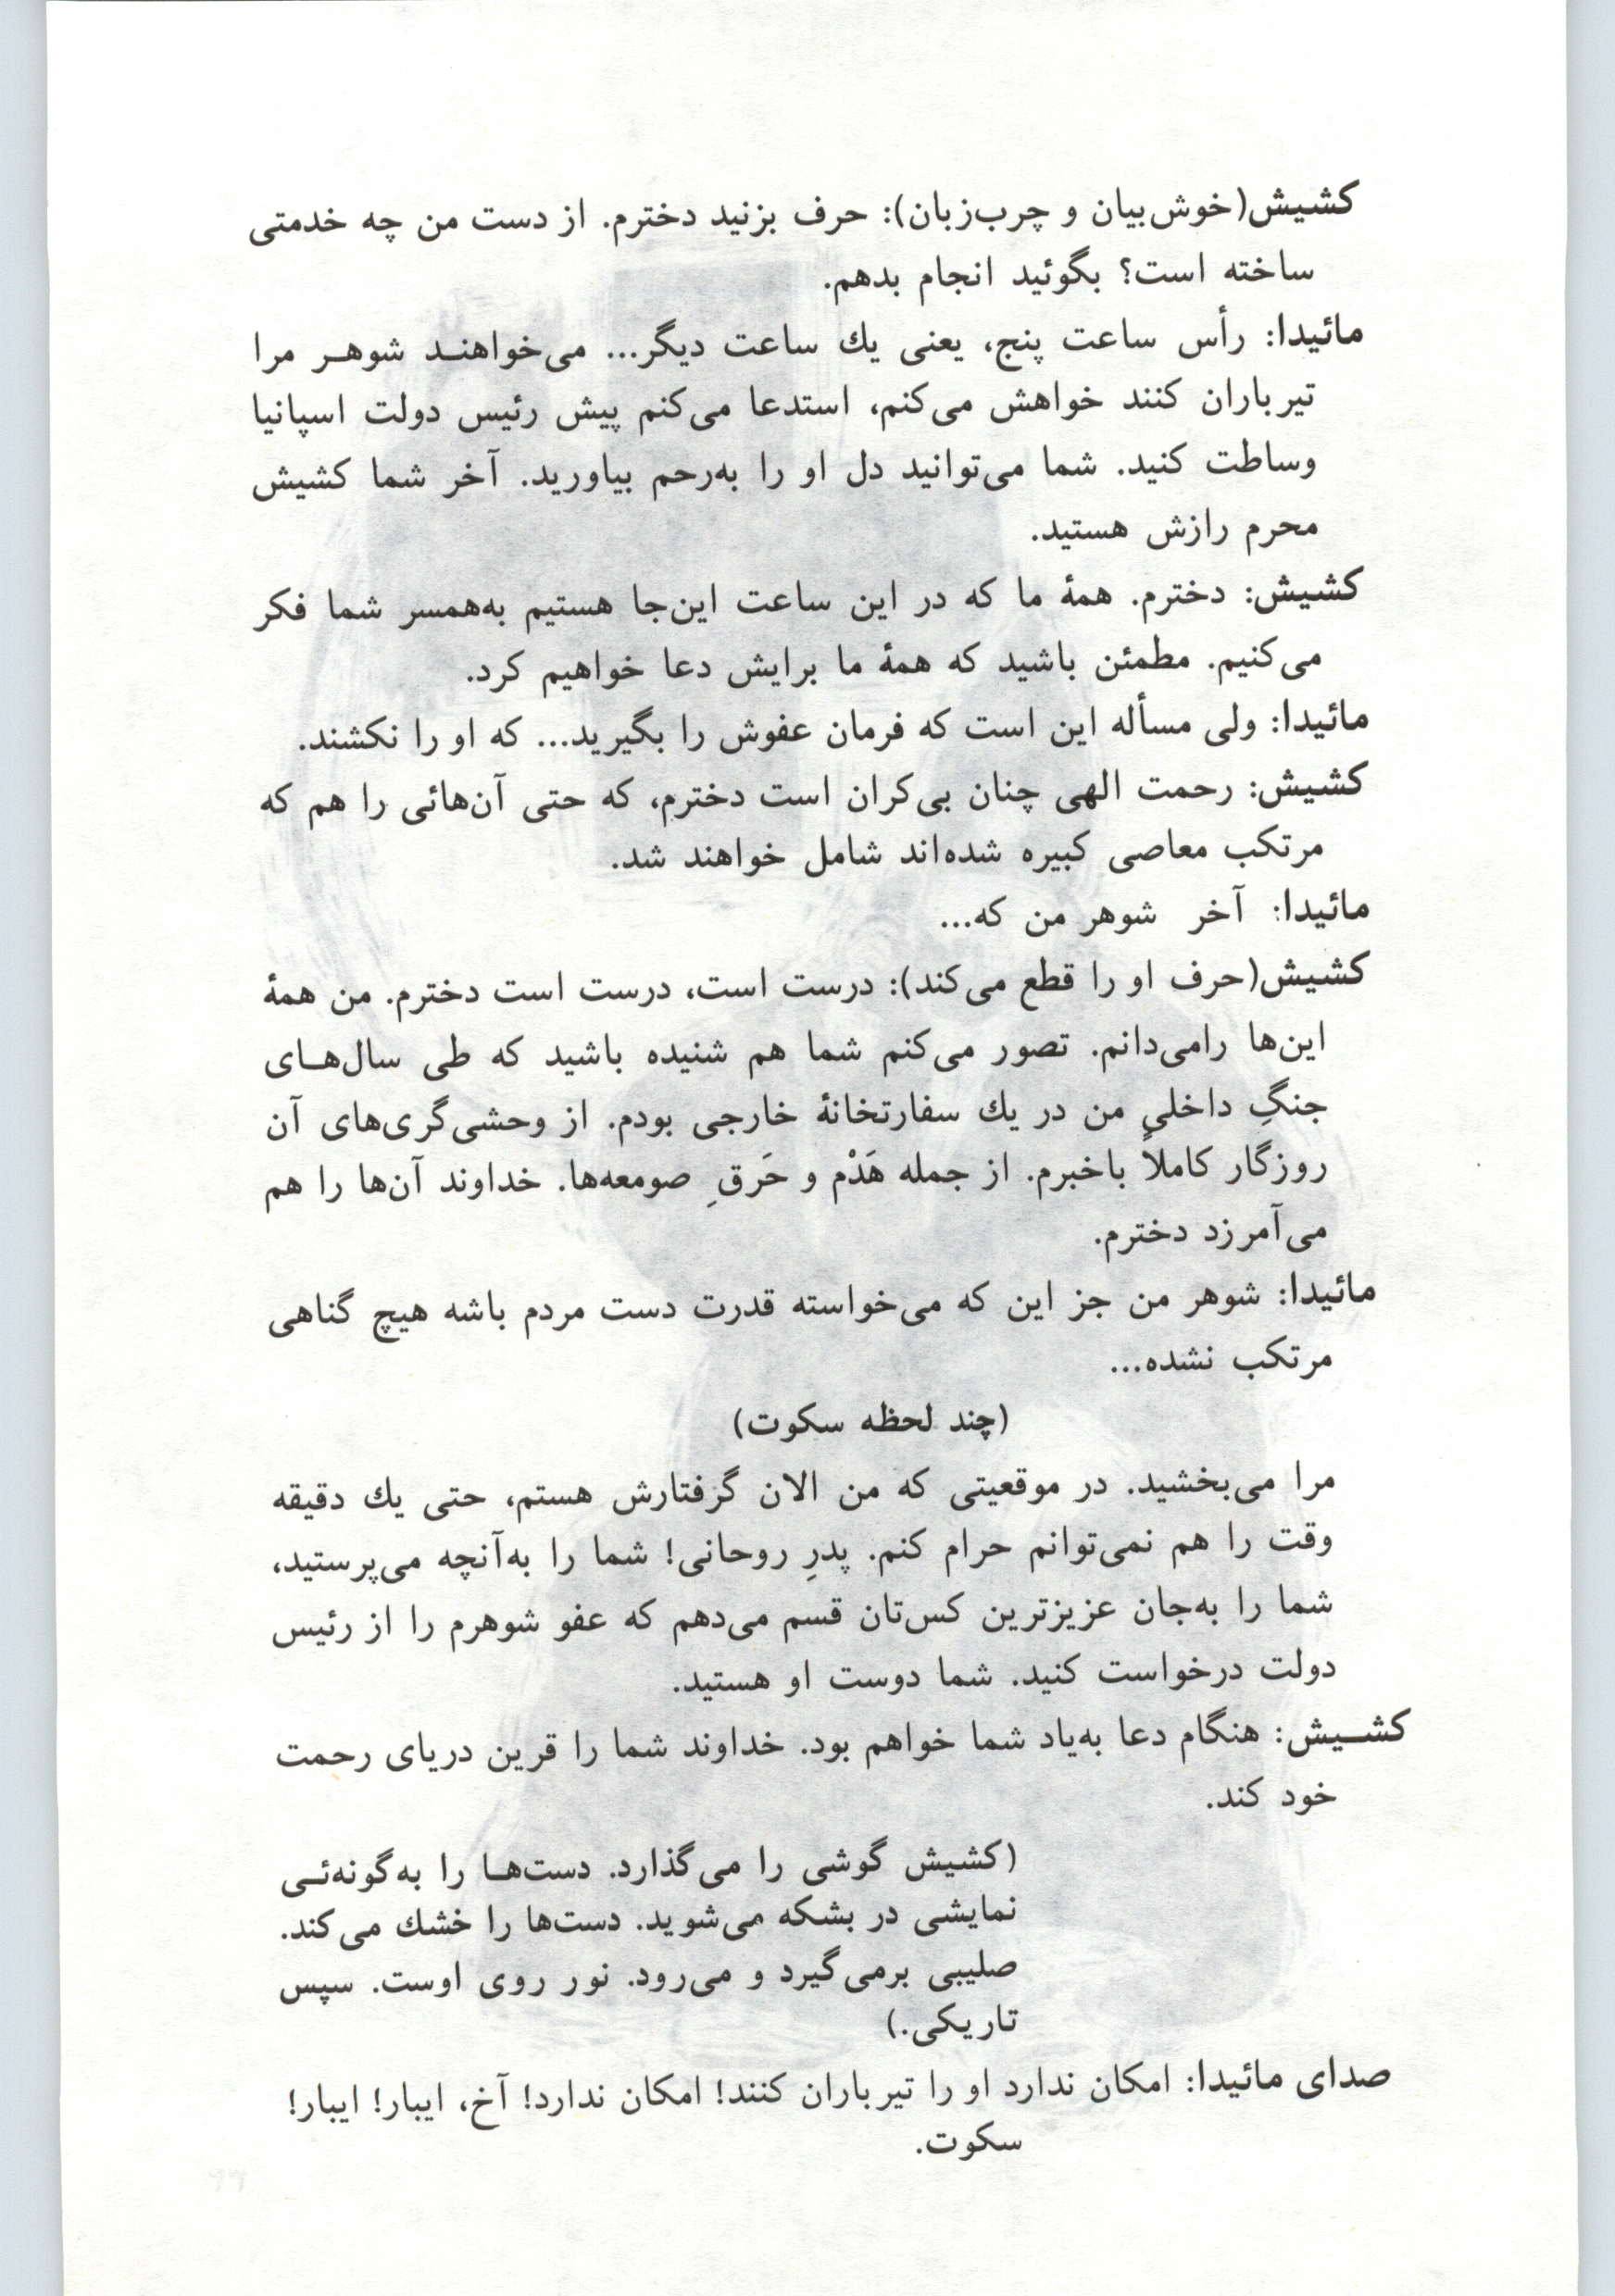 کشیش(خوش‌بیان و چرب‌زبان): حرف بزنید دخترم. از دست من چه خدمتی
ساخته است؟ بگوئید انجام بدهم.
مائیدا: رأس ساعت پنج، یعنی یك ساعت دیگر... می‌خواهنـد شوهـر مرا
تیرباران کنند خواهش می‌کنم، استدعا می‌کنم پیش رئیس دولت اسپانیا
وساطت کنید. شما می‌توانید دل او را به‌رحم بیاورید. آخر شما کشیش
محرم رازش هستید.
کشیش: دخترم. همهٔ ما که در این ساعت این‌جا هستیم به‌همسر شما فکر
می‌کنیم. مطمئن باشید که همهٔ ما برایش دعا خواهیم کرد.
مائیدا: ولی مسأله این است که فرمان عفوش را بگیرید... که او را نکشند.
کشیش: رحمت الهی چنان بی‌کران است دخترم، که حتی آن‌هائی را هم که
مرتکب معاصی کبیره شده‌اند شامل خواهند شد.
مائیدا: آخر شوهر من که...
کشیش(حرف او را قطع می‌کند): درست است، درست است دخترم. من همهٔ
این‌ها رامی‌دانم. تصور می‌کنم شما هم شنیده باشید که طی سال‌هـای
جنگِ داخلی من در یك سفارتخانهٔ خارجی بودم. از وحشی‌گری‌های آن
روزگار کاملاً باخبرم. از جمله هَدْم و حَرقِ صومعه‌ها. خداوند آن‌ها را هم
می‌آمرزد دخترم.
مائیدا: شوهر من جز این که می‌خواسته قدرت دست مردم باشه هیچ گناهی
مرتکب نشده...
(چند لحظه سکوت)
مرا می‌بخشید. در موقعیتی که من الان گرفتارش هستم، حتی یك دقیقه
وقت را هم نمی‌توانم حرام کنم. پدرِ روحانی! شما را به‌آنچه می‌پرستید،
شما را به‌جان عزیزترین کس‌تان قسم می‌دهم که عفو شوهرم را از رئیس
دولت درخواست کنید. شما دوست او هستید.
کشـیش: هنگام دعا به‌یاد شما خواهم بود. خداوند شما را قرین دریای رحمت
خود کند.
(کشیش گوشی را می‌گذارد. دست‌هـا را به‌گونه‌ئـی
نمایشی در بشکه می‌شوید. دست‌ها را خشك می‌کند.
صلیبی برمی‌گیرد و می‌رود. نور روی اوست. سپس
تاریکی.)
صدای مائیدا: امکان ندارد او را تیرباران کنند! امکان ندارد! آخ، ایبار! ایبار!
سکوت.